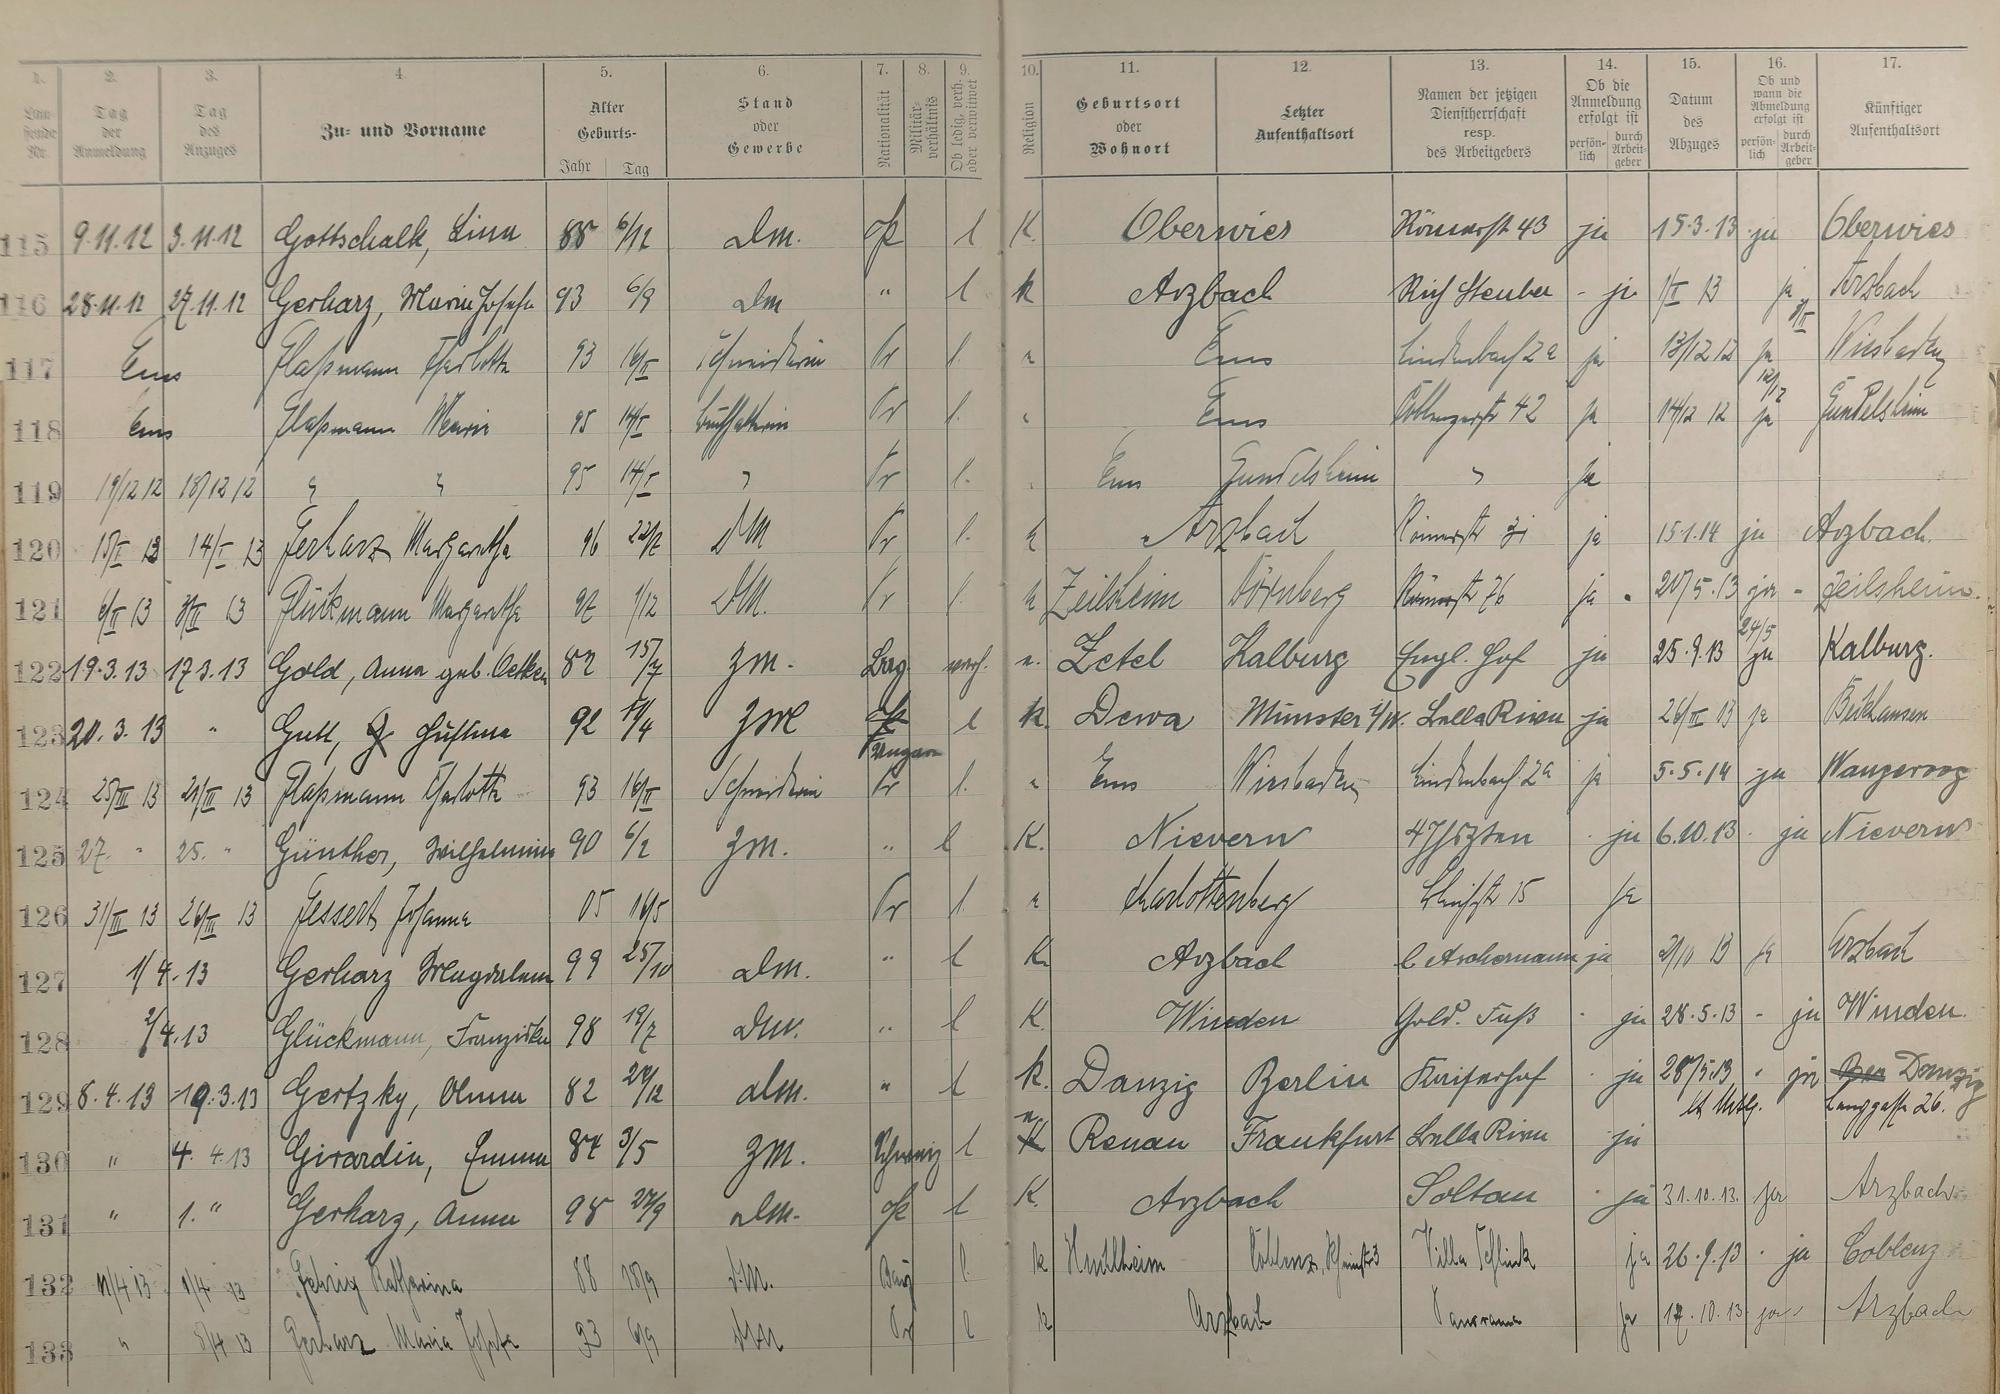 1. 2. 3. 4. 5. 6. 7. 8. 9. 10. 11. 12. 13. 14. 15. 16. 17.
Laufende Nr. Tag der Anmeldung Tag des Anzuges Zu- und Vorname Alter Geburts- Jahr Tag Stand oder Gewerbe Nationalität Militärverhältnis Ob ledig, verh. oder verwitwet Religion Geburtsort oder Wohnort Letzter Aufenthaltsort Namen der jetzigen Dienstherrschaft resp. des Arbeitgebers Ob die Anmeldung erfolgt ist persönlich durch Arbeitgeber Datum des Abzuges Ob und wann die Abmeldung erfolgt ist persönlich durch Arbeitgeber Künftiger Aufenthaltsort
115 9.11.12 3.11.12 Gottschalk, Lina 88 6/12 Dm. l K. Oberwies Römerst 43 ja 15.3.13 ja Oberwies
116 28.11.12 27.11.12 Gerharz, Maria Josefa 93 6/9 Dm " l k Arzbach Steuber - ja 1/II 13 ja Arzbach
117 Ems Flaßmann Charlotte 93 16/II Schneiderin Pr l. Ems Lindenbach 2a ja 13/12 12 ja Wiesbaden
118 Ems Flaßmann Maria 95 14/I Buchhalterin Pr l. Ems Coblenzerst 42 ja 14/12 12 12/12 ja Gundelsheim
119 19/12 12 18/12 12 " " 95 14/I " Pr l. Ems Gundelsheim " ja
120 15/I 13 14/I 13 Gerharz Margaretha 96 22/7 DM Pr l. k Arzbach Römerst ja 15.1.14 ja Arzbach.
121 6/II 13 3/II 13 Glükmann Margaretha 97 1/12 DM. Pr l. k Zeilsheim Dörnberg Römerst 76 ja 20/5.13 ja - Zeilsheim.
122 19.3.13 17.3.13 Gold, Anna geb. Oetken 82 15/7 Zm. verh. Zetel Kalburg Engl. Hof ja 25.9.13 24/5 ja Kalburg.
123 20.3.13 " Gull, Justina 92 /4 Zm Ungarn l k. Dewa Münster Bella Riva ja 26/III 13 ja
124 25/III 13 24/III 13 Flaßmann Charlotte 93 16/II Schneiderin Pr l. Ems Wiesbaden Lindenbach 2a ja 5.5.14 ja Wangeroog
125 27. " 25. " Günther, Wilhelmine 90 6/2 Zm. " l K. Nievern - ja 6.10.13 - ja Nievern
126 31/III 13 26/III 13 Gessert Johanna 05 16/5 Pr l. Charlottenberg 15 ja
127 1/4.13 Gerharz Magdalena 99 25/10 Dm. " l K. Arzbach Aschermann ja 2/10 13 ja Arzbach
128 2/4.13 Glückmann, Franziska 98 19/7 Dm. " l K. Winden Gold. Fuß - ja 28.5.13 - ja Winden.
129 8.4.13 19.3.13 Gertzky, Anna 82 24/12 Dm. " l k. Danzig Berlin Kaiserhof - ja 28/5 13 - ja Danzig
Langgasse 26.
130 " 4.4.13 Girardin, Emma 84 3/5 Zm. Schweiz l Renan Frankfurt Bella Riva - ja
131 " 1. " Gerharz, Anna 98 27/9 Dm. l K. Arzbach Soltau - ja 31.10.13. ja Arzbach
132 11/4 13 1/4 13 Gehrig Katharina 88 18/9 D.M. Bay l. k Coblenz, Villa ja 26.9.13 - ja Coblenz
133 " 5/4 13 Gerharz Maria Josefa 93 6/9 DM Pr l k Arzbach Panorama ja 17.10.13 ja Arzbach